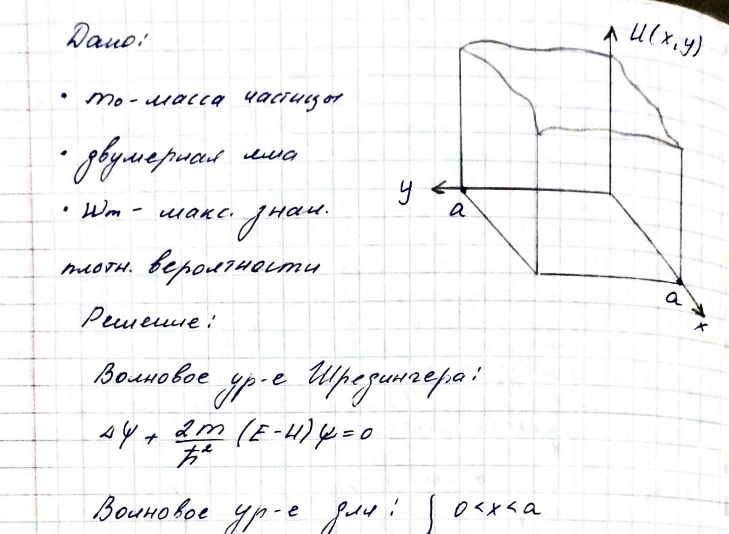 Дано:
• m₀ - масса частицы
• двумерная яма
• Wm - макс. знач.
плотн. вероятности
Решение:
Волновое ур-е Шредингера:
Δψ + 2m/ħ² (E - U) ψ = 0
Волновое ур-е для: { 0 < x < a
U(x, y)
y
a
a
x